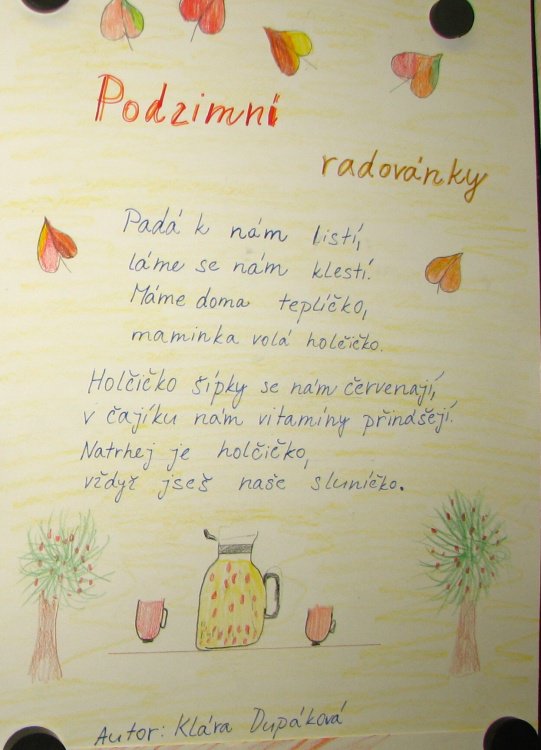 Podzimní
radovánky
Padá k nám listí,
láme se nám klestí.
Máme doma teplíčko,
maminka volá holčičko.
Holčičko šípky se nám červenají,
v čajíku nám vitamíny přinášejí.
Natrhej je holčičko,
vždyť jseš naše sluníčko.
Autor: Klára Dupáková